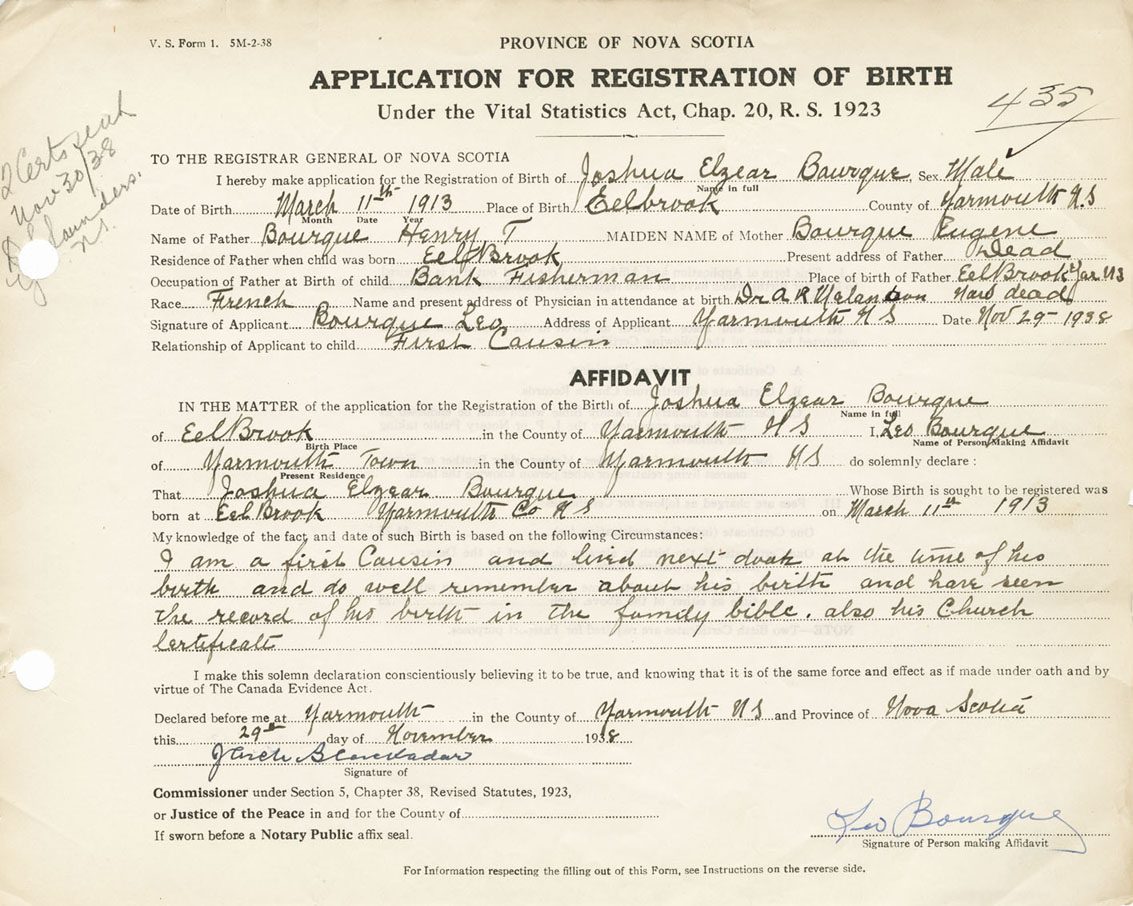 V. S. Form 1. 5M-2-38
PROVINCE OF NOVA SCOTIA
APPLICATION FOR REGISTRATION OF BIRTH
Under the Vital Statistics Act, Chap. 20, R. S. 1923
435
2 Certs
Nov 30/38
N.S.
TO THE REGISTRAR GENERAL OF NOVA SCOTIA
I hereby make application for the Registration of Birth of Joshua Elzear Bourque, Sex Male
Name in full
Date of Birth March 11th 1913 Place of Birth Eelbrook County of Yarmouth N.S
Month Date Year
Name of Father Bourque Henry T MAIDEN NAME of Mother Bourque Eugene
Residence of Father when child was born Eel Brook Present address of Father Dead
Occupation of Father at Birth of child Bank Fisherman Place of birth of Father Eel Brook Yar NS
Race French Name and present address of Physician in attendance at birth Dr A R Melanson Now dead
Signature of Applicant Bourque Leo Address of Applicant Yarmouth N S Date Nov 29-1938
Relationship of Applicant to child First Causin
AFFIDAVIT
IN THE MATTER of the application for the Registration of the Birth of Joshua Elzear Bourque
Name in full
of Eel Brook in the County of Yarmouth N S I, Leo Bourque
Birth Place Name of Person Making Affidavit
of Yarmouth Town in the County of Yarmouth N S do solemnly declare :
Present Residence
That Joshua Elzear Bourque Whose Birth is sought to be registered was
born at Eel Brook Yarmouth Co N S on March 11th 1913
My knowledge of the fact, and date of such Birth is based on the following Circumstances:
I am a first Causin and lived next dook at the time of his
birth and do well remember about his birth and have seen
the record of his birth in the family bible. also his Church
Certificate
I make this solemn declaration conscientiously believing it to be true, and knowing that it is of the same force and effect as if made under oath and by
virtue of The Canada Evidence Act.
Declared before me at Yarmouth in the County of Yarmouth N S and Province of Nova Scotia
this 29th day of November 1938
Signature of
Commissioner under Section 5, Chapter 38, Revised Statutes, 1923,
or Justice of the Peace in and for the County of
If sworn before a Notary Public affix seal.
Leo Bourque
Signature of Person making Affidavit
For Information respecting the filling out of this Form, see Instructions on the reverse side.